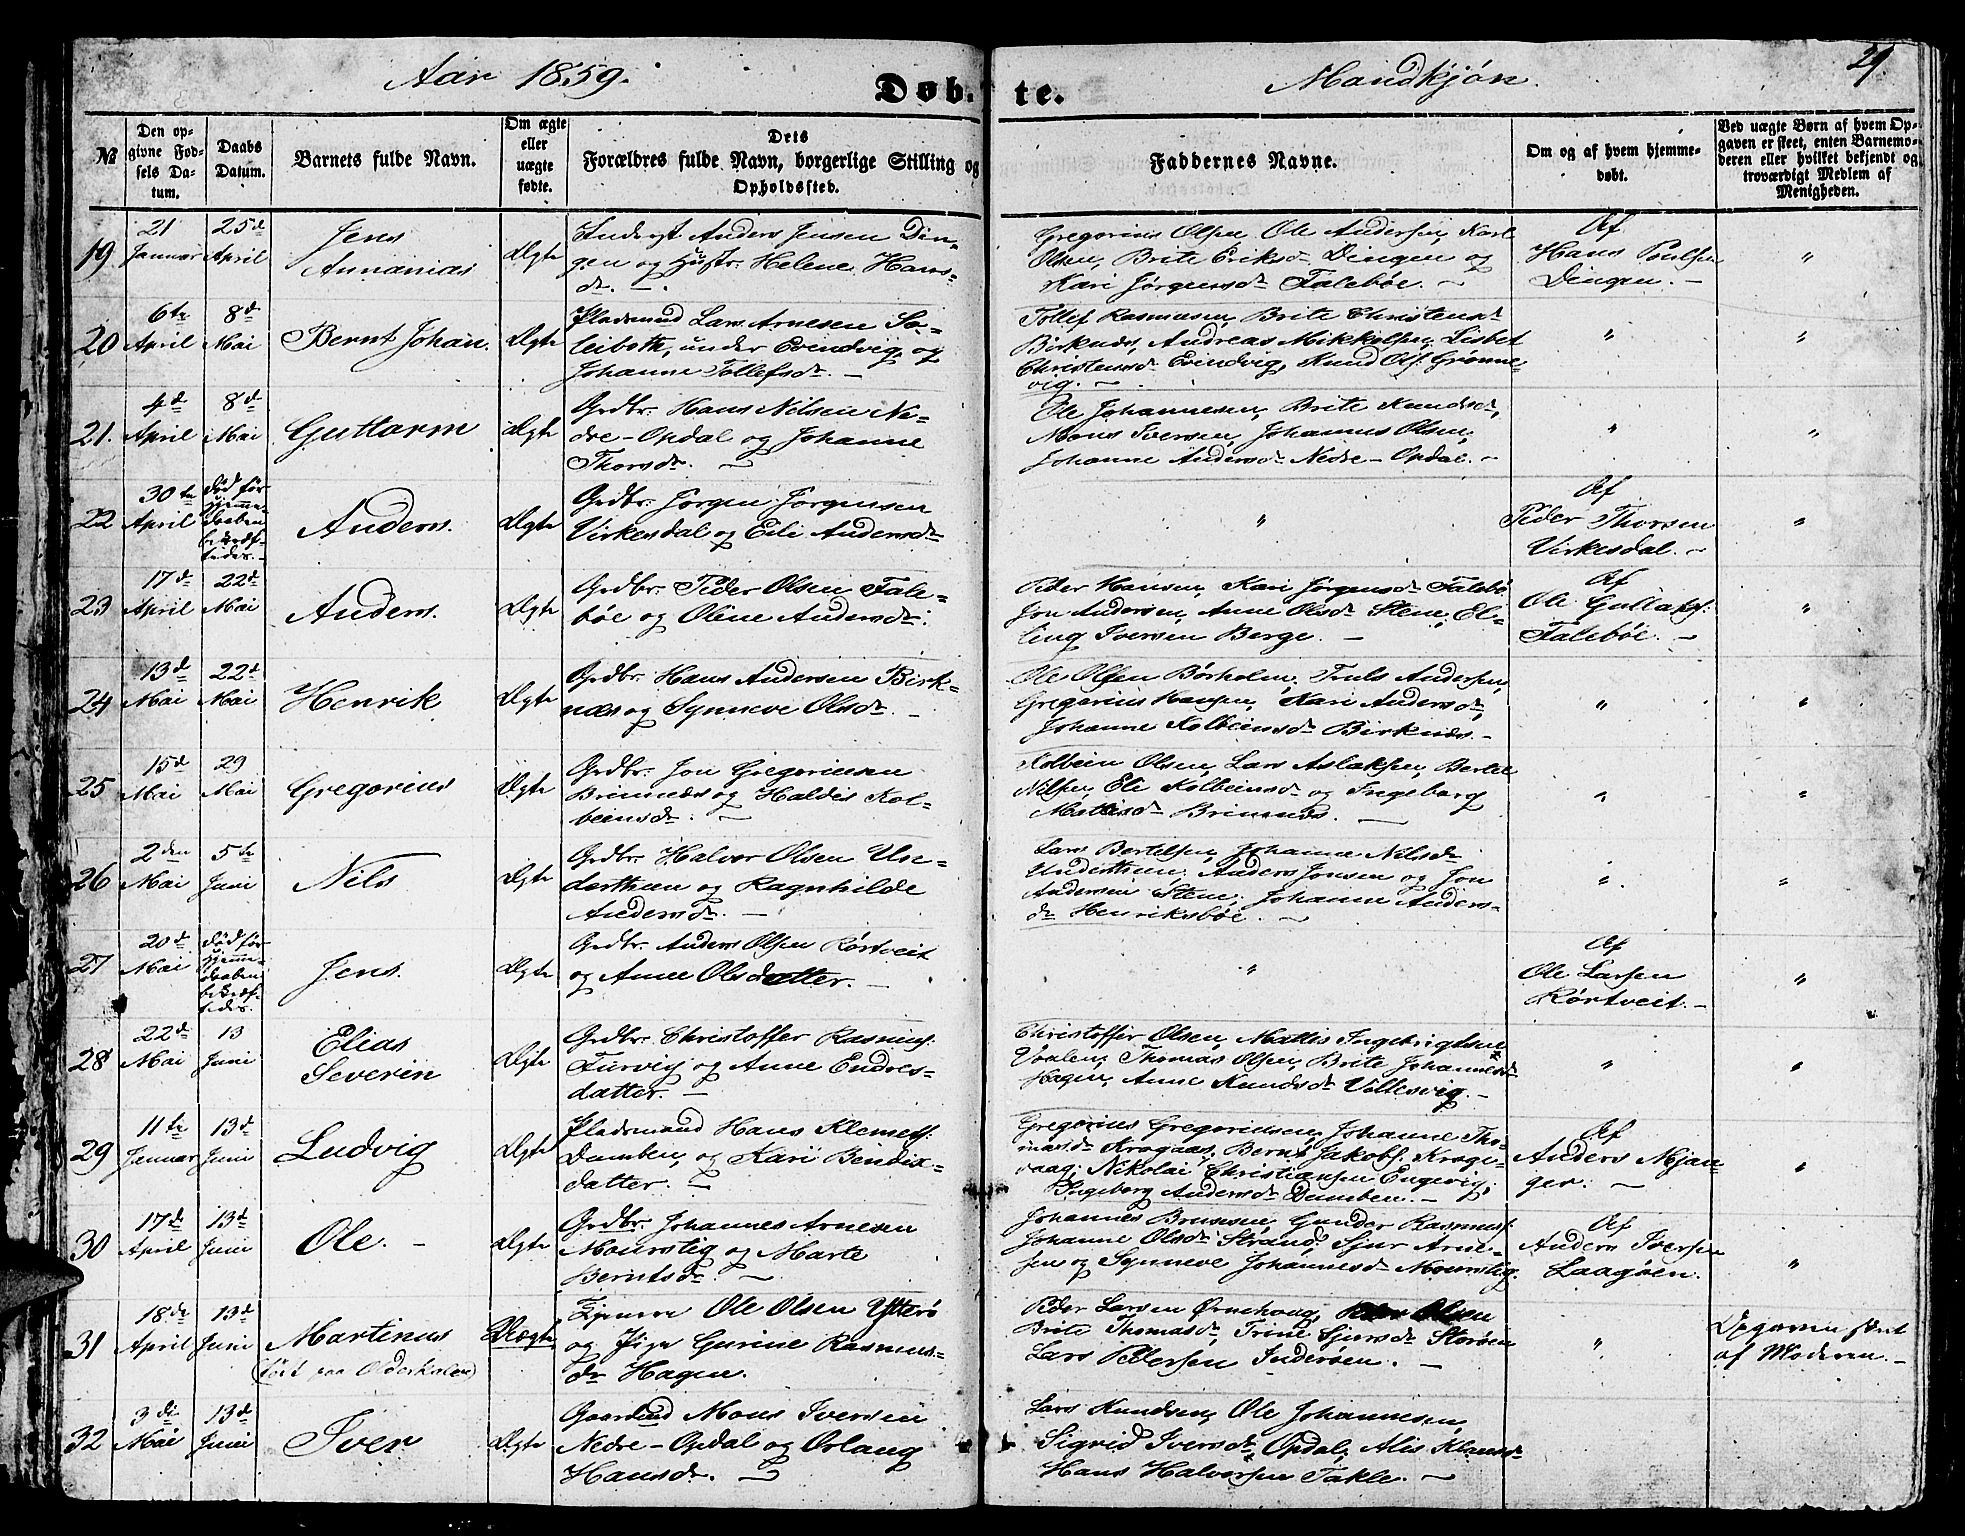 Aar 1859.
Døb-
te.
Mandkjøn.
29
№
Den op-
givne Fød-
sels Da-
tum.
Daabs
Datum.
Barnets fulde Navn.
Om ægte
eller
uægte
fødte.
Dets
Forældres fulde Navn, borgerlige Stilling og
Opholdssted.
Faddernes Navne.
Om og af hvem hjemme-
døbt.
Ved uægte Børn af hvem Op-
gaven er skeet, enten Barnemo-
deren eller hvilket bekjendt og
troværdigt Medlem af
Menigheden.
19
21
Januar
25d
April
Jens
Annanias
Ægte
Anders Jensen Din-
gen og Hustr. Helene Hans-
dr. —
Gregorius Olsen, Ole Andersen, Karl
Olsen, Brite Eriksdr Dingen og
Kari Jørgensdr Falebøe. —
Af
Hans Poulsen
Dingen. —
"
20
6te
April
8d
Mai
Bernt Johan.
Ægte
Pladsmand Lars Arnesen So-
leibotn, under Evendvig, og
Johanne Tollefsdr. —
Tollef Rasmussen, Brite Christensdr
Birknæs, Andreas Mikkelsen, Lisbet
Christensdr Evindvig, Knud Ols. Grønne-
vig. —
"
"
21.
4d
April
8d
Mai
Guttorm
Ægte
Grdbr. Hans Nilsen Ne-
dre-Opdal og Johanne
Thorsdr. —
Ole Johannesen, Brite Knudsdr,
Mons Iversen, Johannes Olsen,
Johanne Andersdr Nedre-Opdal. —
"
"
22
30te
April
død før
hjemme-
daaben
bekræf-
tedes. —
Anders.
Ægte
Grdbr. Jørgen Jørgensen
Virkesdal og Eli Andersdr
"
Af
Peder Thorsen
Virkesdal. —
"
23
17d
April
22d
Mai
Anders.
Ægte
Grdbr. Peder Olsen Fale-
bøe og Oline Andersdr.
Peder Hansen, Kari Jørgensdr Falebø
Jon Andersen, Anne Olsdr Stene, El-
ling Iversen Berge. —
Af
Ole Guttorms.
Falebøe. —
"
24
13d
Mai
22d
Mai
Henrik
Ægte
Grdbr. Hans Andersen Birk-
næs og Synneve Olsdr. —
Ole Olsen Børholm, Truls Andersen,
Gregorius Hansen, Kari Andersdr,
Johanne Kolbeinsdr Birknæs. —
"
"
25
15d
Mai
29
Mai
Gregorius
Ægte
Grdbr. Jon Gregoriusen
Brimnæs og Haldis Kol-
beinsdr. —
Kolbein Olsen, Lars Aslaksen, Bertel
Nilsen, Eli Kolbeinsdr og Ingeborg
Mattisdr Brimnæs. —
"
"
26
2den
Mai
5te
Juni
Nils
Ægte
Grdbr. Halvor Olsen Un-
derthun og Ragnhilde
Andersdr. —
Lars Bertelsen, Johanna Nilsdr
Underthun, Anders Jonsen og Jon
Andersen Stene, Johanne Anders-
dr Henriksbøe. —
"
"
27
20d
Mai
død før
hjemme-
daaben
bekræf-
tedes.
Jens.
Ægte
Grdbr. Anders Olsen Rørtveit
og Anne Olsdatter. —
"
Af
Ole Larsen
Rørtveit. —
"
28
22d
Mai
13
Juni
Elias
Severin
Ægte
Grdbr. Christoffer Rasmus.
Furvig og Anne Endres-
datter. —
Christoffer Olsen, Mattis Ingebrigtsen
Thomas Olsen, Brite Johannesdr
Hagen, Anne Knudsdr Vollesvig. —
"
"
29
11te
Januar
13d
Juni
Ludvig
Ægte
Pladsmand Hans Klemets.
Damben, og Kari Bendix-
datter. —
Gregorius Gregoriusen, Johanne Tho-
masdr Kragaas, Bernt Jakobs. Krage-
vaag, Nikolai Christiansen Engevig,
Ingeborg Andersdr Damben. —
Af
Anders Mjan-
ger. —
"
30
17de
April
13d
Juni
Ole. —
Ægte
Grdbr. Johannes Arnesen
Mourstig og Marte
Berntsdr. —
Johannes Brusesen, Gunder Rasmus.
Johanne Olsdr Strand, Sjur Arne-
sen og Synneve Johannesdr Mourstig.
Af
Anders Iversen
Laagøen.
"
31
18de
April
13d
Juni
Martinus
(født paa Olderkalen)
Uægte
Tjenere Ole Olsen Ytterø
og Pige Gurine Rasmus-
dr Hagen.
Peder Larsen Ørnehaug,
Brite Thomasdr, Trine Sjursdr Storøen
Lars Pedersen Inderøen. —
"
Opgaven skeet
af Moderen. —
32
3die
Mai
13d
Juni
Iver
Ægte
Gaardmd Mons Iversen
Nedre-Opdal og Orlaug
Hansdr. —
Lars Knudsen, Ole Johannesen,
Sigrid Iversdr, Opdal, Alis Klausdr
Hans Halvorsen Takle. —